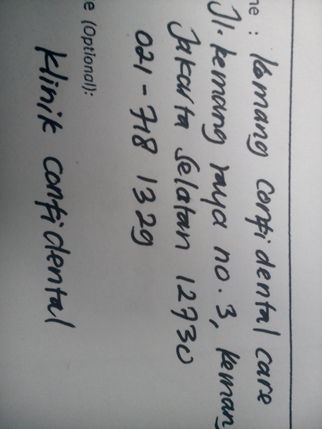 ne : Kemang confidental care
Jl. kemang raya no. 3, keman
Jakarta Selatan 12730
021 - 718 1329
e (Optional):
klinik confidental